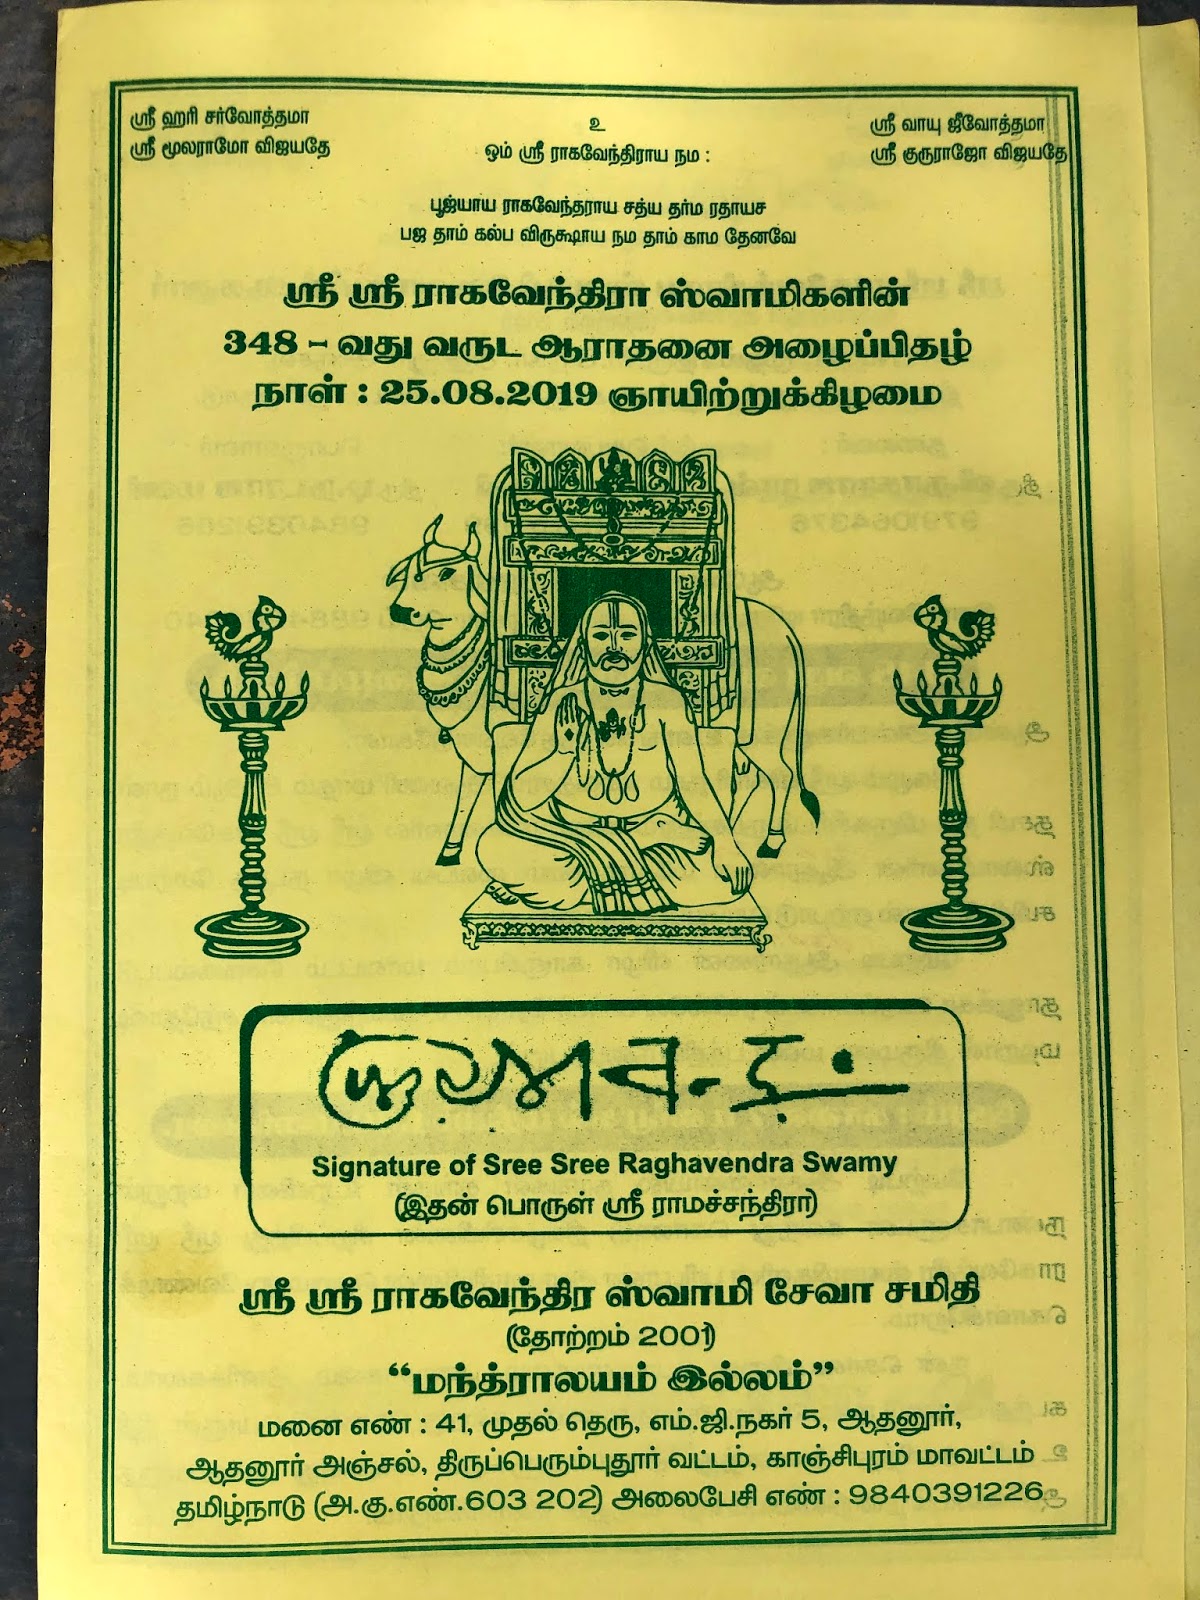 ஸ்ரீ ஹரி சர்வோத்தமா
ஸ்ரீ மூலராமோ விஜயதே
உ
ஓம் ஸ்ரீ ராகவேந்திராய நம :
ஸ்ரீ வாயு ஜீவோத்தமா
ஸ்ரீ குருராஜோ விஜயதே
பூஜ்யாய ராகவேந்தராய சத்ய தர்ம ரதாயச
பஜ தாம் கல்ப விருக்ஷாய நம தாம் காம தேனவே
ஸ்ரீ ஸ்ரீ ராகவேந்திரா ஸ்வாமிகளின்
348 - வது வருட ஆராதனை அழைப்பிதழ்
நாள் : 25.08.2019 ஞாயிற்றுக்கிழமை
Signature of Sree Sree Raghavendra Swamy
(இதன் பொருள் ஸ்ரீ ராமச்சந்திரா)
ஸ்ரீ ஸ்ரீ ராகவேந்திர ஸ்வாமி சேவா சமிதி
(தோற்றம் 2001)
“மந்த்ராலயம் இல்லம்”
மனை எண் : 41, முதல் தெரு, எம்.ஜி.நகர் 5, ஆதனூர்,
ஆதனூர் அஞ்சல், திருப்பெரும்புதூர் வட்டம், காஞ்சிபுரம் மாவட்டம்
தமிழ்நாடு (அ.கு.எண்.603 202) அலைபேசி எண் : 9840391226